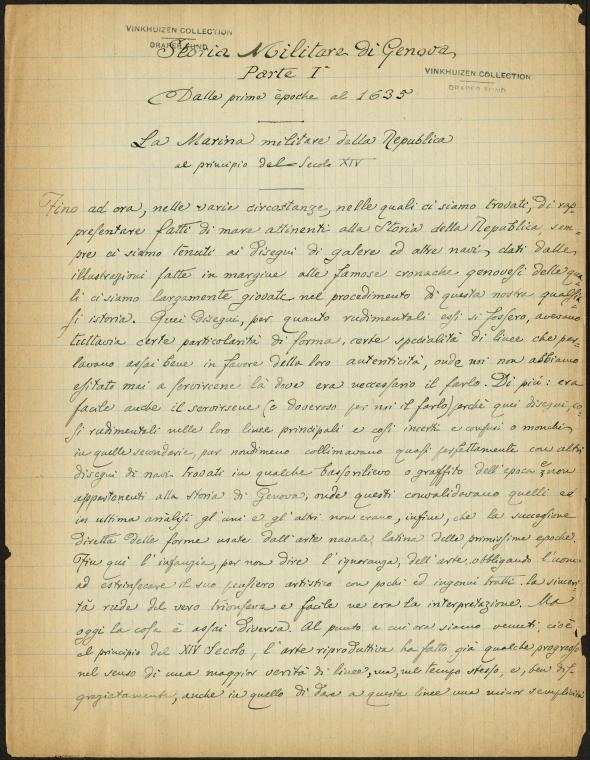 VINKHUIZEN COLLECTION
DRAPER FUND
Storia Militare di Genova
Parte Iª
VINKHUIZEN COLLECTION
DRAPER FUND
Dalle prime èpoche al 1635
La Marina militare della Republica
al principio del Secolo XIV
Fino ad ora, nelle varie circostanze, nelle quali ci siamo trovati, di rap-
presentare fatti di mare attinenti alla Storia della Republica, sem-
pre ci siamo tenuti ai disegni di galere ed altre navi, dati dalle
illustrazioni fatte in margine alle famose cronache genovesi delle qua-
li ci siamo largamente giovati nel procedimento di questa nostra qualsia-
si istoria. Quei disegni, per quanto rudimentali essi si fossero, avevano
tuttavia certe particolarità di forma, certe specialità di linee che par-
lavano assai bene in favore della loro autenticità, onde noi non abbiamo
esitato mai a servircene là dove era neccessario il farlo. Di più: era
facile anche il servirsene (e doveroso per noi il farlo) perchè quei disegni, co-
si rudimentali nelle loro linee principali e così incerti e confusi o monchi
in quelle secondarie, pur nondimeno collimavano quasi perfettamente con altri
disegni di navi trovati in qualche bassorilievo o graffito dell'epoca e non
appartenenti alla storia di Genova, onde questi convalidavano quelli ed
in ultima analisi gl'uni e gl'altri non erano, infine, che la successione
diretta delle forme usate dall'arte navale latina delle primissime epoche.
Fin qui l'infanzia, per non dire l'ignoranza, dell'arte, obbligando l'uomo
ad estrinsecare il suo pensiero artistico con pochi ed ingenui tratti la sinceri-
tà rude del vero trionfava e facile ne era la interpretazione. Ma
oggi la cosa è assai diversa. Al punto a cui ora siamo venuti, cioè
al principio del XIV Secolo, l'arte riproduttiva ha fatto già qualche progresso
nel senso di una maggior verità di linee, ma, nel tempo stesso, e, ben dis-
graziatamente, anche in quello di dare a questa linee una minor semplicità